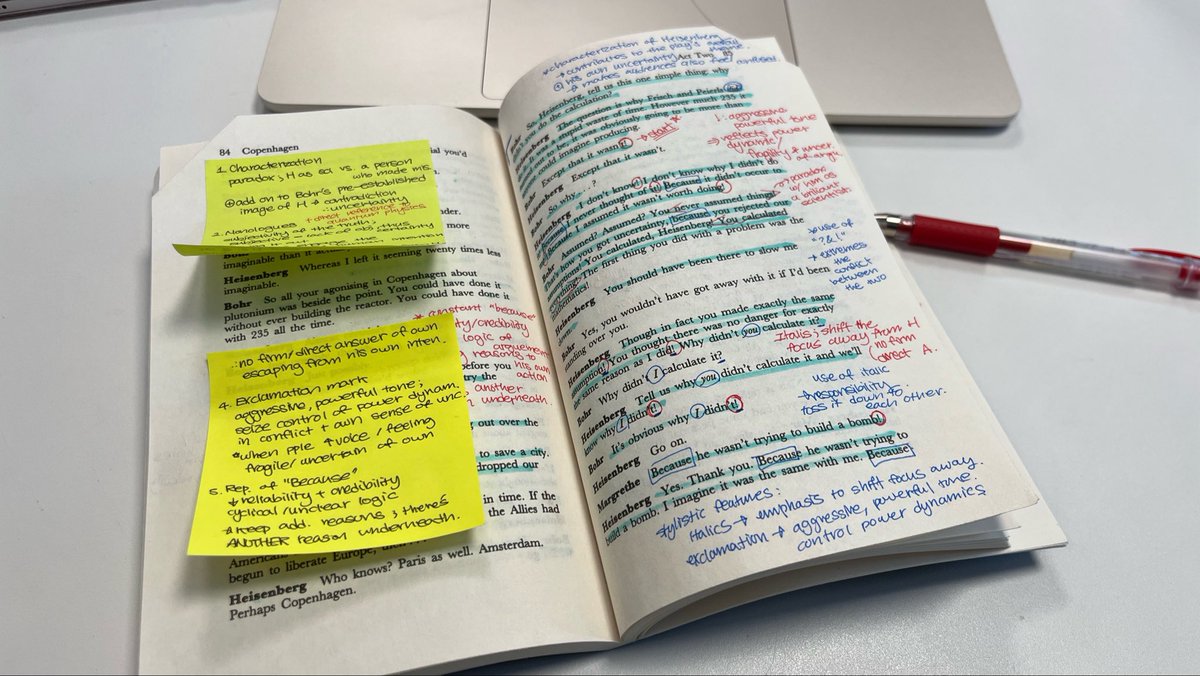 84 Copenhagen
ial you'd
1. Characterization
paradox; H as sci vs. a person
who made mis.
⊕add on to Bohr's pre-established
image of H → contradiction
∴uncertainty
+direct reference to
quantum physics
2. Monologues
subjectivity of the truth;
more
imaginable than it
Heisenberg Whereas I left it seeming twenty times less
imaginable.
Bohr So all your agonising in Copenhagen about
plutonium was beside the point. You could have done it
without ever building the reactor. You could have done it
with 235 all the time.
* constant "because"
ity/credibility
logic of
arguement
reasons to
efore you his own
try the action
another
n underneath.
∴no firm/direct answer of own
escaping from his own inten.
4. Exclamation mark
aggressive, powerful tone;
seize control of power dynam.
in conflict + own sense of unc.
*when pple ↑voice / feeling
fragile/uncertain of own
5. Rep. of "Because"
↓reliability + credibility
cyclical/unclear logic
*keep add. reasons; there's
ANOTHER reason underneath.
g out over the
to save a city.
dropped our
in time. If the
the Allies had
American
begun to liberate Europe,
Heisenberg Who knows? Paris as well. Amsterdam.
Perhaps Copenhagen.
*characterization of Heisenberg
→ contributes to the play's
his own uncertainty
makes audiences also feel confused
Act Two 85
So, Heisenberg, tell us this one simple thing: why
you do the calculation?
The question is why Frisch and Peierls did
it. It was a stupid waste of time. However much 235 it
turned out to be, it was obviously going to be more than
could imagine producing.
Except that it wasn't!
→ start*
Except that it wasn't.
So why . . . ?
I don't know! I don't know why I didn't do
it! Because I never thought of it! Because it didn't occur to
me! Because I assumed it wasn't worth doing!
Bohr Assumed? Assumed? You never assumed things!
That's how you got uncertainty, because you rejected our
assumptions! You calculated, Heisenberg! You calculated
everything! The first thing you did with a problem was the
mathematics!
Heisenberg You should have been there to slow me
down.
Bohr Yes, you wouldn't have got away with it if I'd been
standing over you.
Heisenberg Though in fact you made exactly the same
assumption! You thought there was no danger for exactly
the same reason as I did! Why didn't you calculate it?
Bohr Why didn't I calculate it?
Heisenberg Tell us why you didn't calculate it and we'll
know why I didn't!
Bohr It's obvious why I didn't!
Heisenberg Go on.
Margrethe Because he wasn't trying to build a bomb!
Heisenberg Yes. Thank you. Because he wasn't trying to
build a bomb. I imagine it was the same with me. Because
!: aggressive
powerful tone
⇒ reflects power
dynamic/
fragility & uncer.
of argu.
→ paradox
w/ him as
a brilliant
scientist
*use of
"? & !"
→ extremes
the
conflict
between
the two
Italis; shift the
focus away from H
(no firm
direct A.
use of italic
→responsibility
toss it down to
each other.
stylistic features:
italics → emphasis to shift focus away.
exclamation → aggressive, powerful tone.
control power dynamics